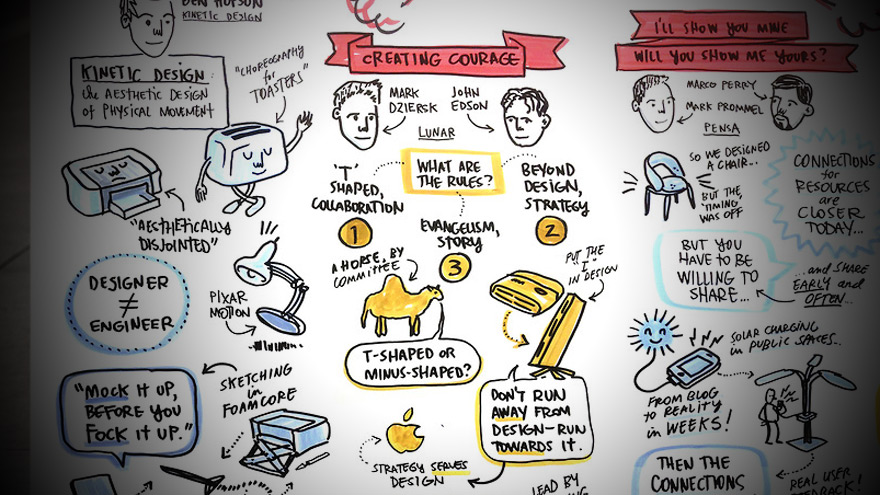 BEN HOPSON
KINETIC DESIGN
KINETIC DESIGN:
the AESTHETIC DESIGN
of PHYSICAL MOVEMENT
"CHOREOGRAPHY
for
TOASTERS"
"AESTHETICALLY
DISJOINTED"
DESIGNER
≠
ENGINEER
PIXAR
MOTION
"MOCK IT UP,
BEFORE YOU
FOCK IT UP."
SKETCHING
in
FOAMCORE
CREATING COURAGE
MARK
DZIERSK
JOHN
EDSON
LUNAR
WHAT ARE
THE RULES?
'T'
SHAPED,
COLLABORATION
1
BEYOND
DESIGN,
STRATEGY
2
EVANGELISM,
STORY
3
A HORSE, BY
COMMITTEE
PUT THE
I
IN DESIGN
T-SHAPED OR
MINUS-SHAPED?
DON'T RUN
AWAY FROM
DESIGN-RUN
TOWARDS IT.
STRATEGY SERVES
DESIGN
LEAD BY
I'LL SHOW YOU MINE
WILL YOU SHOW ME YOURS?
MARCO PERRY
MARK PROMMEL
PENSA
SO WE DESIGNED
A CHAIR...
BUT THE
'TIMING
WAS OFF
CONNECTIONS
for
RESOURCES
are
CLOSER
TODAY...
BUT YOU
HAVE TO BE
WILLING TO
SHARE...
...and SHARE
EARLY and
OFTEN...
SOLAR CHARGING
in PUBLIC SPACES...
FROM BLOG
TO REALITY
in WEEKS!
THEN THE
CONNECTIONS
REAL USER